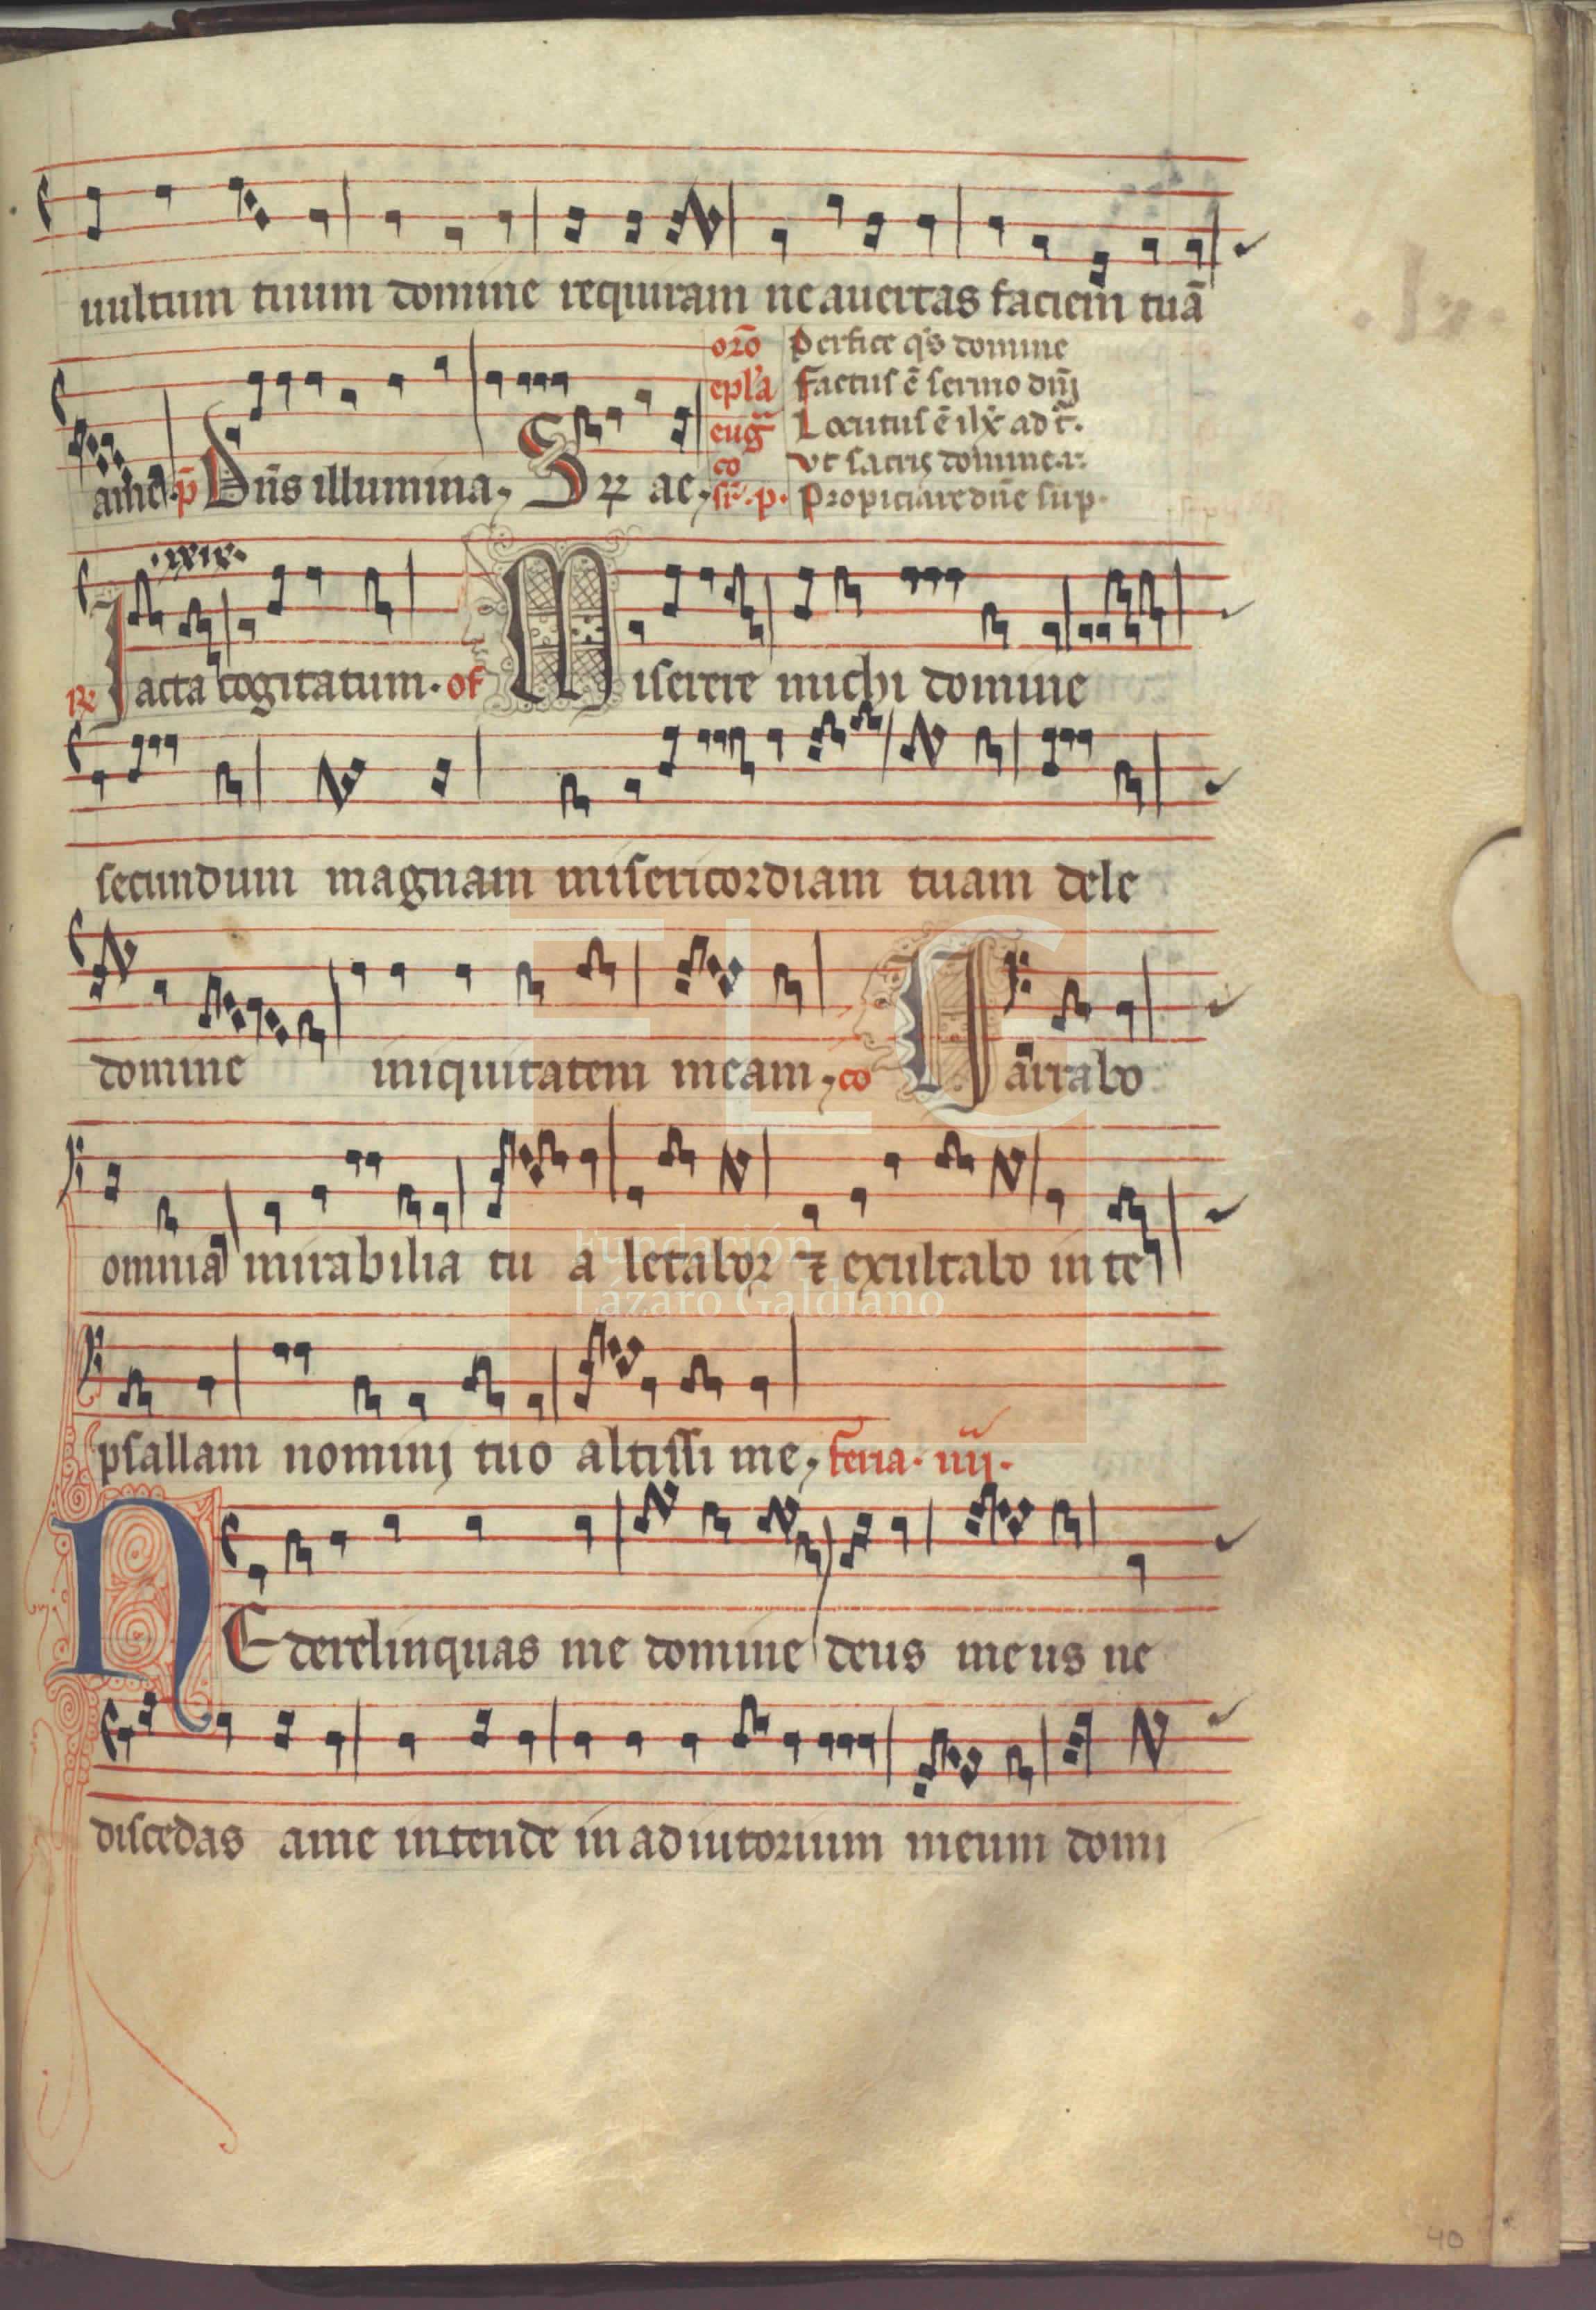 uultum tuum domine requiram ne auertas faciem tuā
orō Perfice q̄s domine
epl'a Factus ē sermo dn̄j
euḡ Locutus ē
co Vt sacris domine
ame. p̄ Dn̄s illumina, Sꝝ ae, Propiciare dn̄e sup.
.xxix.
℞ Iacta cogitatum. of Miserere michi domine
secundum magnam misericordiam tuam dele
domine iniquitatem meam, co Narrabo
omnia mirabilia tu a letabor ⁊ exultabo in te
psallam nominj tuo altissi me, feria. iiij.
NE derelinquas me domine deus meus ne
discedas ame intende in adiutorium meum domi
FLG
Fundación
Lázaro Galdiano
40